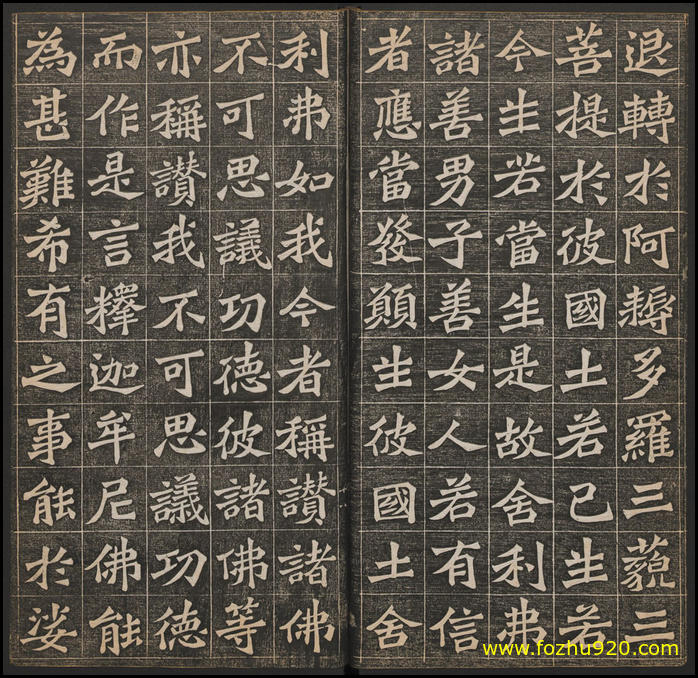 退轉於阿耨多羅三藐三
菩提於彼國土若已生若
今生若當生是故舍利弗
諸善男子善女人若有信
者應當發願生彼國土舍
利弗如我今者稱讃諸佛
不可思議功德彼諸佛等
亦稱讃我不可思議功德
而作是言釋迦牟尼佛能
為甚難希有之事能於娑
www.fozhu920.com